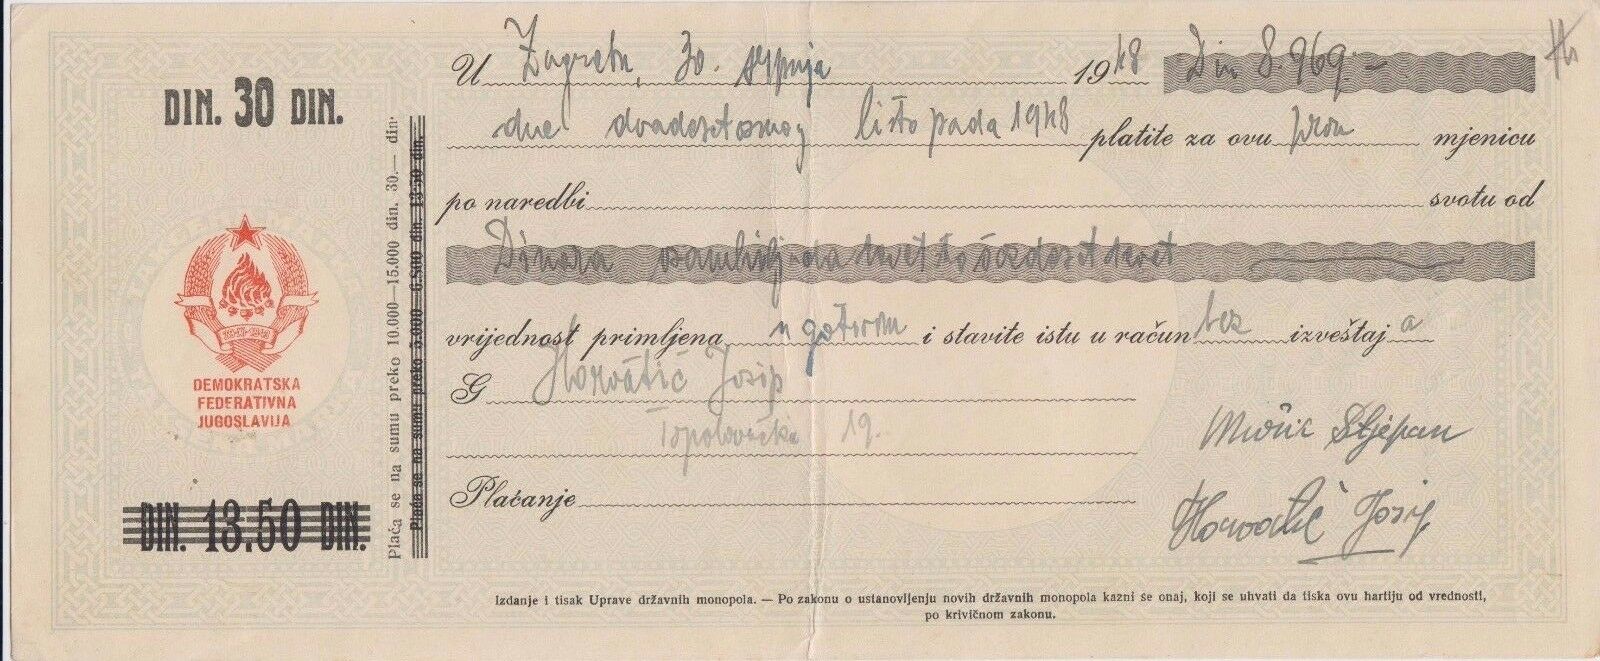 DIN. 30 DIN.
DEMOKRATSKA
FEDERATIVNA
JUGOSLAVIJA
DIN. 13.50 DIN.
Plaća se na sumu preko 10.000—15.000 din. 30.— din.
Plaća se na sumu preko 5.000— 6.800 din. 13·50 din.
U Zagrebu, 30. srpnja 1948 Din 8.969.-
dne dvadesetosmog listopada 1948 platite za ovu prvu mjenicu
po naredbi svotu od
Dinara osamhiljada devetstošezdesetdevet
vrijednost primljena u gotovom i stavite istu u račun bez izveštaja
G Horvatić Josip
Topolovačka 19.
Stjepan
Plaćanje
Horvatić Josip
Izdanje i tisak Uprave državnih monopola. — Po zakonu o ustanovljenju novih državnih monopola kazni se onaj, koji se uhvati da tiska ovu hartiju od vrednosti,
po krivičnom zakonu.